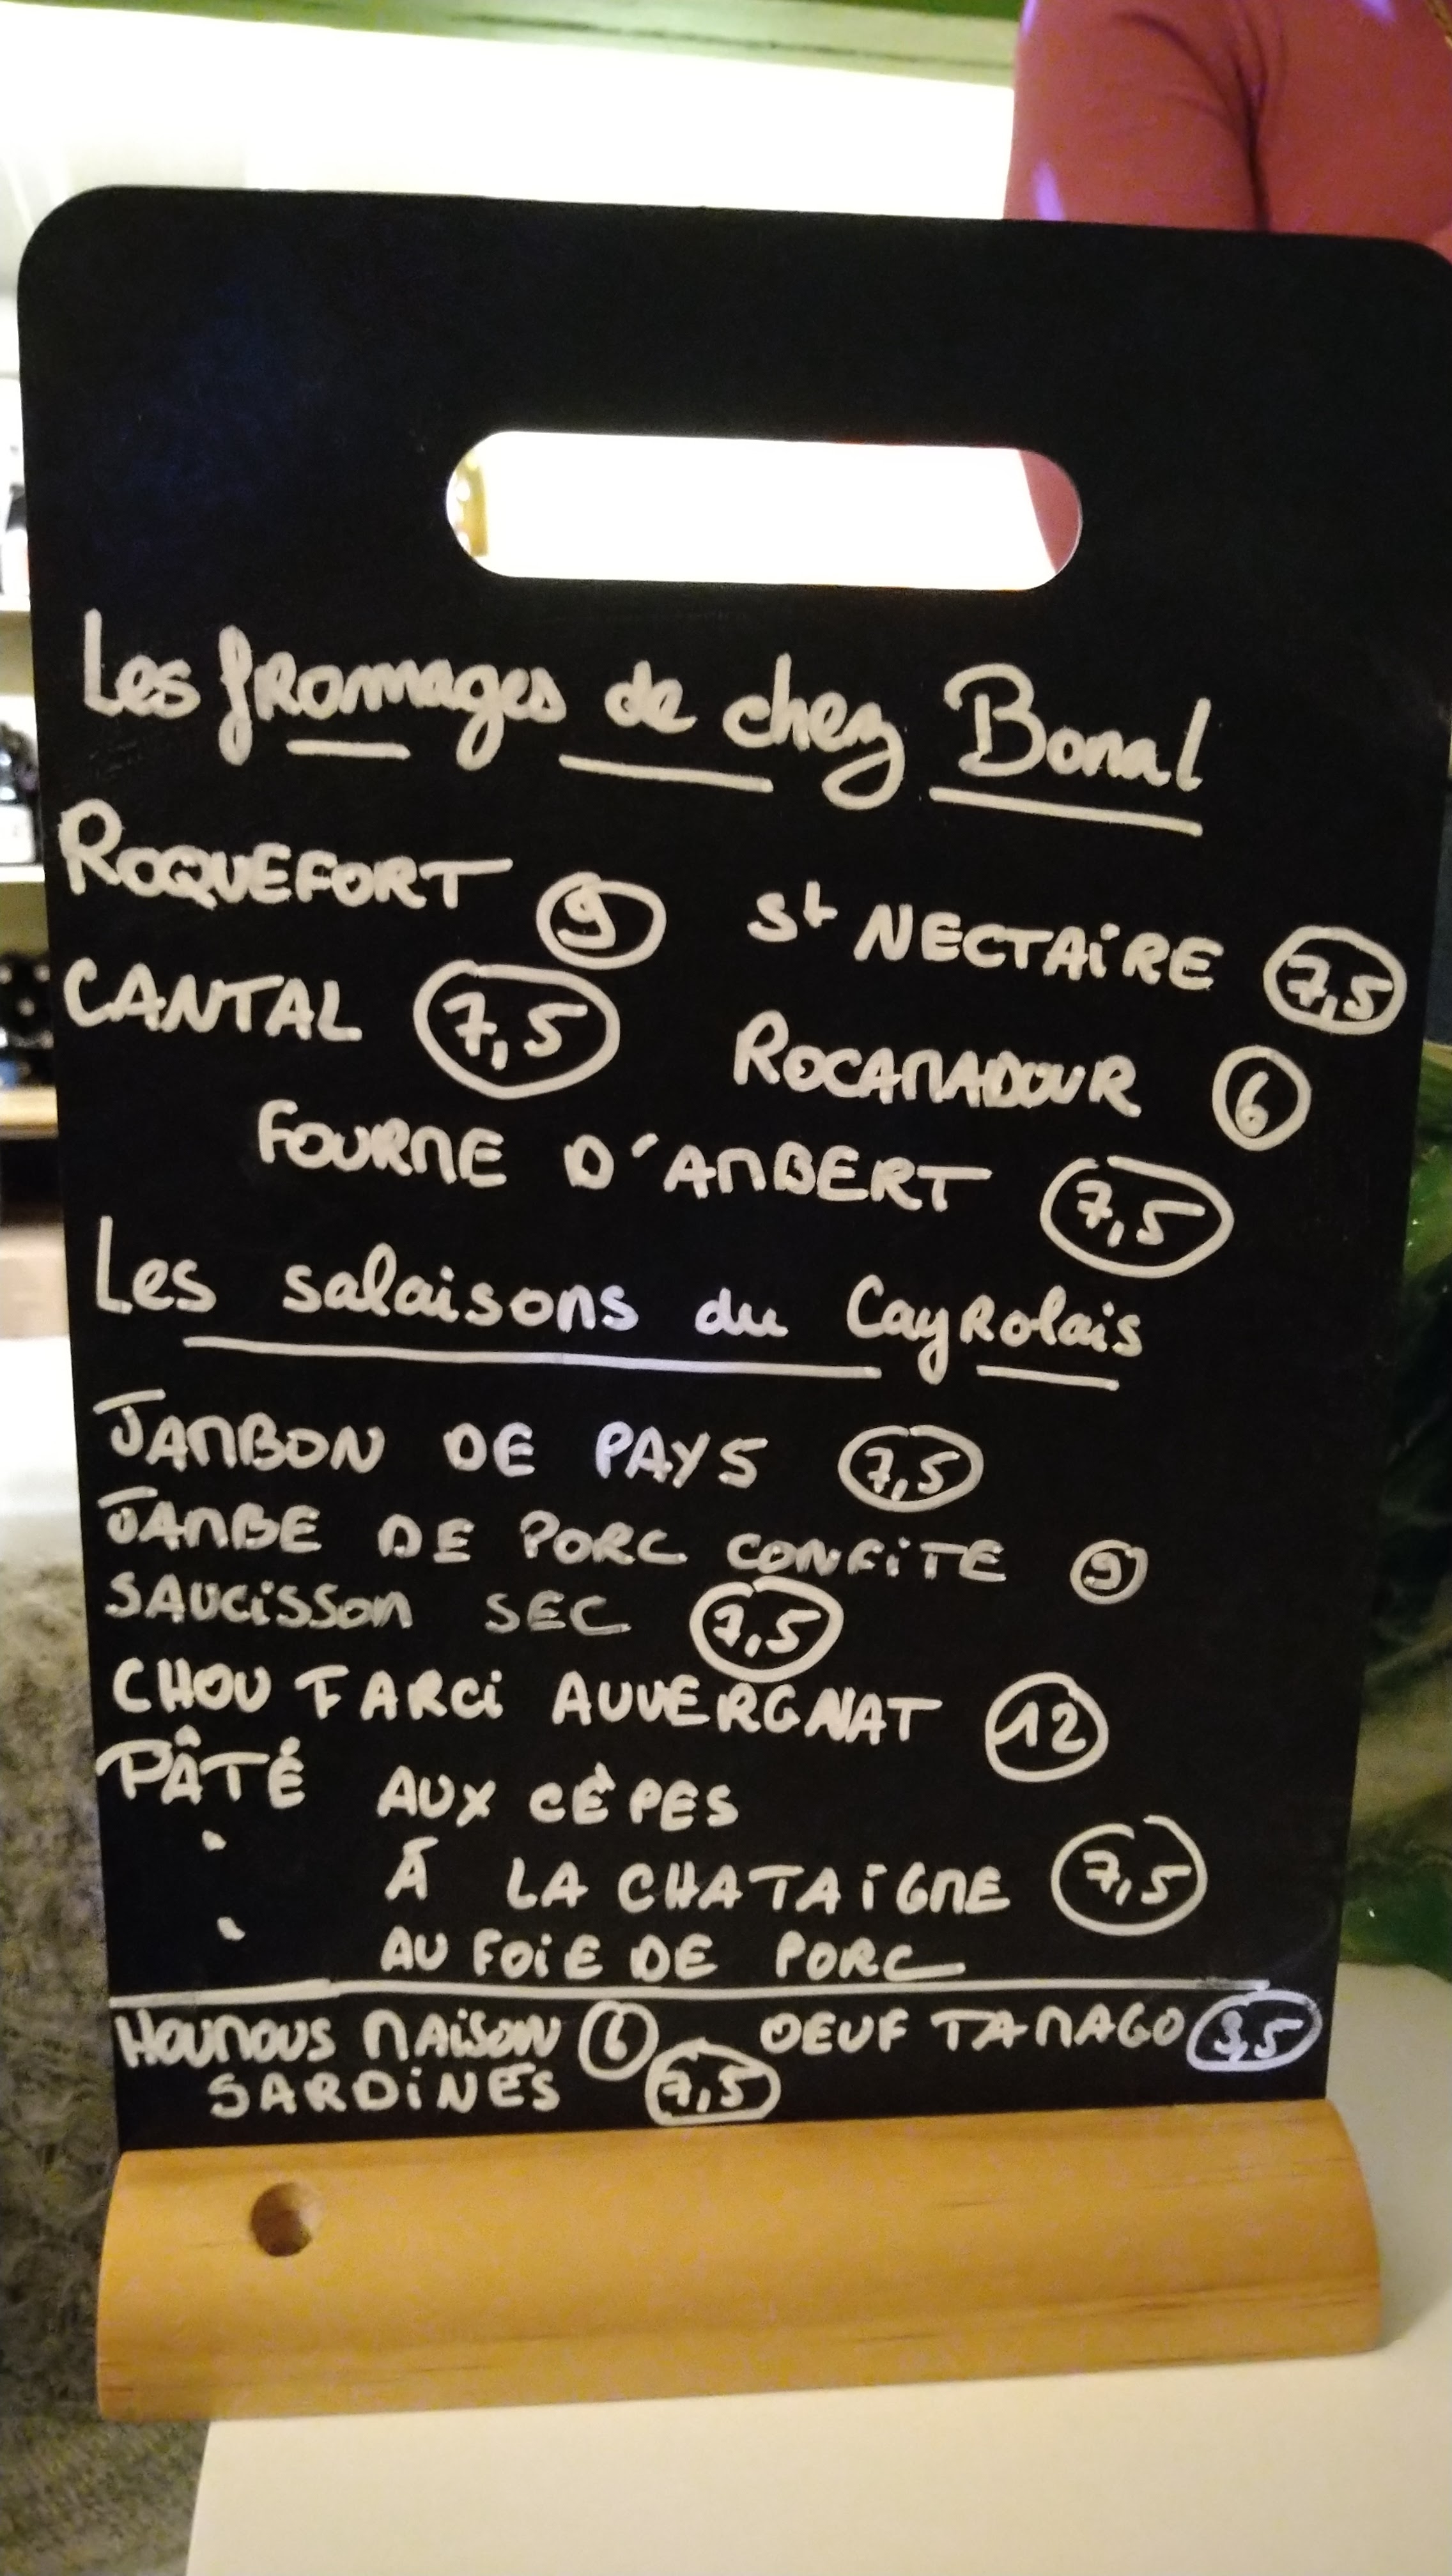 Les fromages de chez Bonal
ROQUEFORT 9 St NECTAIRE 7,5
CANTAL 7,5 ROCAMADOUR 6
FOURME D'AMBERT 7,5
Les salaisons du Cayrolais
JAMBON DE PAYS 7,5
JAMBE DE PORC CONFITE 9
SAUCISSON SEC 7,5
CHOU FARCI AUVERGNAT 12
PÂTÉ AUX CÈPES
" À LA CHATAIGNE 7,5
" AU FOIE DE PORC
HOUMOUS MAISON 6 OEUF TAMAGO 3,5
SARDINES 7,5